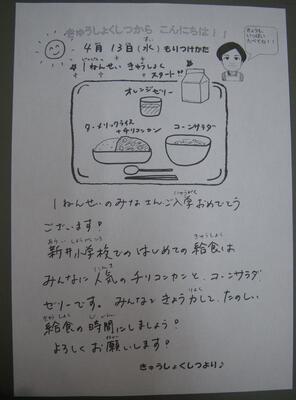 きゅうしょくしつから こんにちは！！
4月13日(水)もりつけかた
1ねんせい きゅうしょく
スタート
オレンジゼリー
ターメリックライス
+チリコンカン
コーンサラダ
1ねんせいのみなさんご入学おめでとう
ございます！
新井小学校でのはじめての給食は
みんなに人気のチリコンカンと、コーンサラダ
ゼリーです。みんなときょう力して、たのしい
給食の時間にしましょう！
よろしくお願いします！
きゅうしょくしつより♪